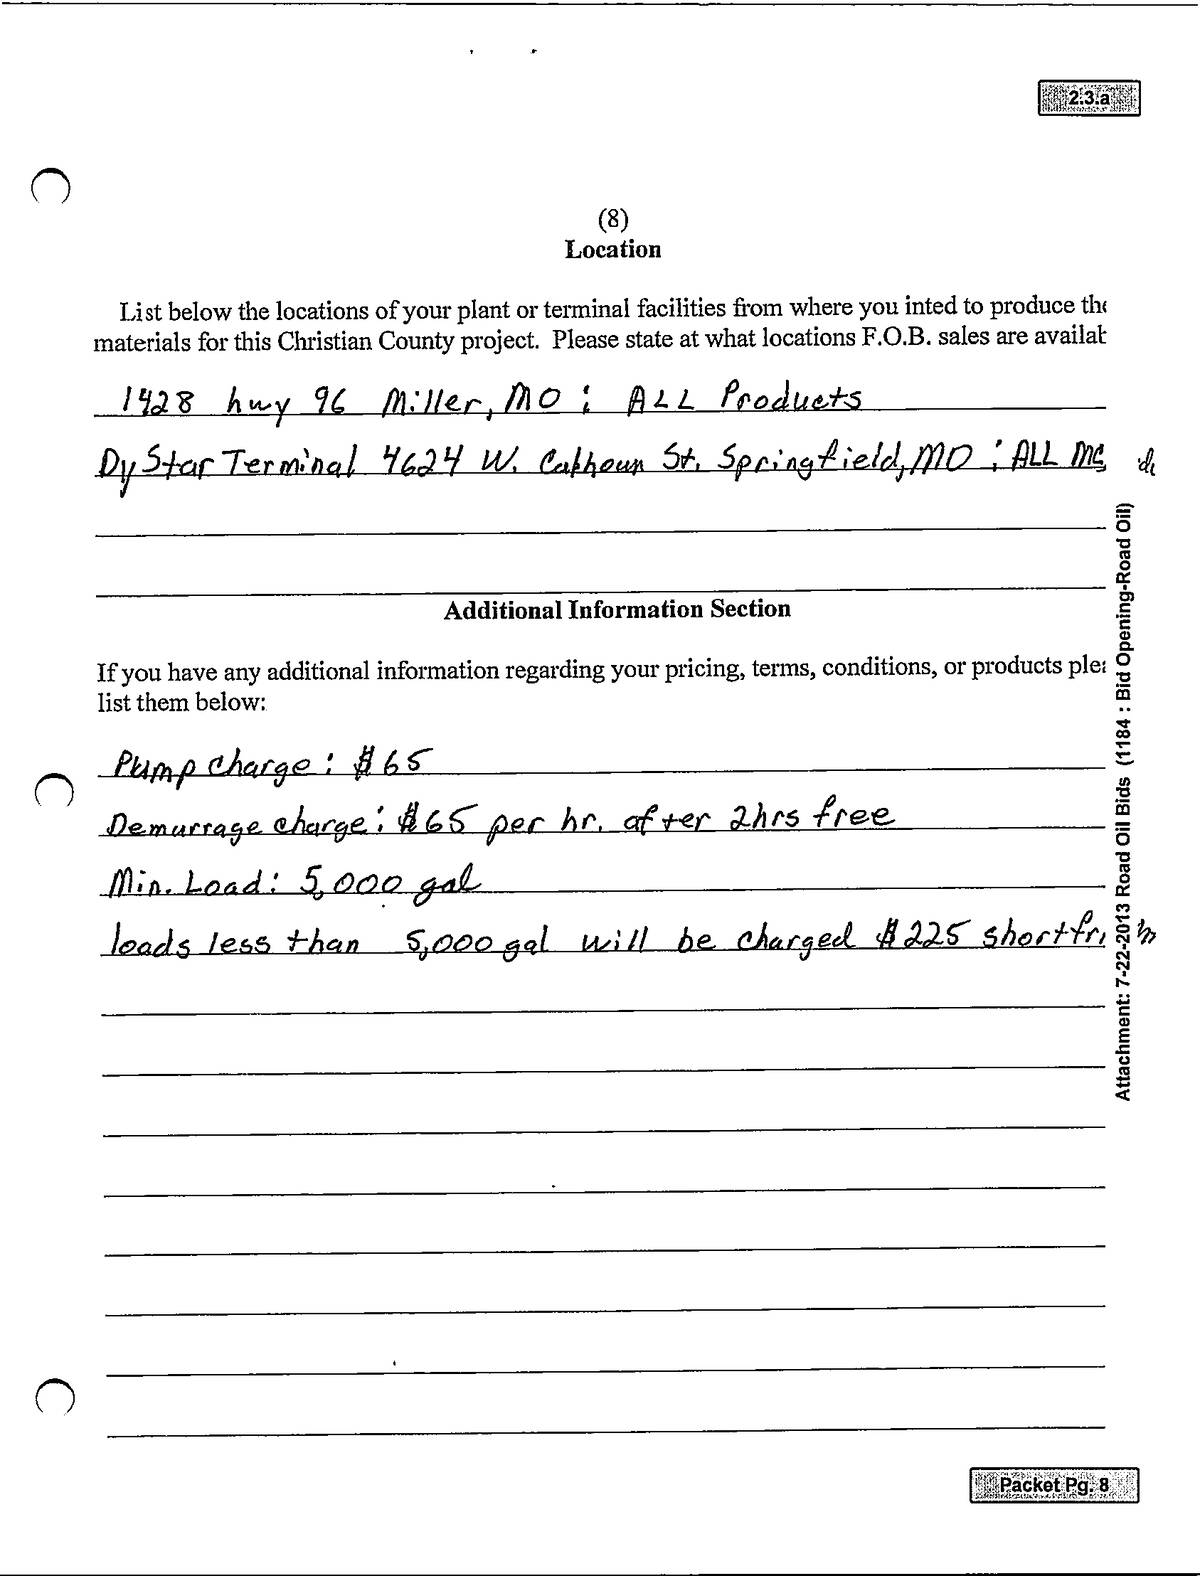 2.3.a
(8)
Location
List below the locations of your plant or terminal facilities from where you inted to produce the
materials for this Christian County project. Please state at what locations F.O.B. sales are availab
1428 hwy 96 Miller, MO : ALL Products
DyStar Terminal 4624 W. Calhoun St. Springfield, MO : ALL MC
Additional Information Section
If you have any additional information regarding your pricing, terms, conditions, or products plea
list them below:
Pump charge : $65
Demurrage charge : $65 per hr. after 2hrs free
Min. Load : 5,000 gal
loads less than 5,000 gal will be charged $225 short
Attachment: 7-22-2013 Road Oil Bids (1184 : Bid Opening-Road Oil)
Packet Pg. 8